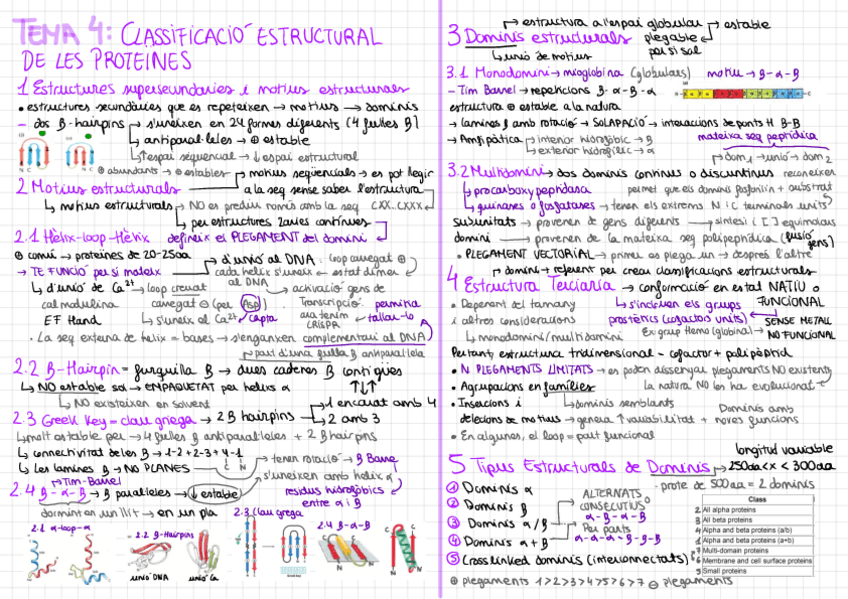 TEMA 4: CLASSIFICACIÓ ESTRUCTURAL
DE LES PROTEÏNES
1 Estructures supersecundàries i motius estructurals
• estructures secundàries que es repeteixen → motius → dominis
- dos β-hairpins → s'uneixen en 24 formes diferents (4 fulles β)
→ antiparal·leles → ⊕ estable
↑ espai seqüencial → ↓ espai estructural
⊕ abundants → ⊕ estables
N C
2 Motius estructurals
→ motius seqüencials → es pot llegir
a la seq sense saber l'estructura
↳ motius estructurals → NO es prediu només amb la seq CXX..CXXX
↳ per estructures 2àries contínues
2.1 Hèlix-loop-Hèlix defineix el PLEGAMENT del domini
⊕ comú → proteïnes de 20-25aa
→ TE FUNCIÓ per si mateix
→ d'unió al DNA: loop carregat ⊕
cada hèlix s'uneix ← estat dímer
al DNA
↳ d'unió de Ca²⁺ → loop creuat
→ activació gens de
calmodulina
carregat ⊖ (per Asp)
Transcripció
permetria
EF Hand
↳ s'uneix al Ca²⁺ capta
ara tenim
CRISPR
tallar-lo
• La seq externa de hèlix = bases → s'enganxen complementari al DNA
part d'una fulla β antiparalela
2.2 β-Hairpin = forquilla β → dues cadenes β contigües
↳ NO estable sol → EMPAQUETAT per hèlixs α
↳ NO existeixen en solvent
2.3 Greek Key = clau grega → 2 β hairpins
→ 1 encarat amb 4
→ 2 amb 3
↳ molt estable per → 4 fulles β antiparal·leles + 2 β hairpins
↳ connectivitat de les β → 1-2+2-3+4-1
↳ Les làmines β → NO PLANES
C N
→ tenen rotació → β Barrel
s'uneixen amb hèlix α
2.4 β-α-β → β paralleles → ↓ estable
→ Tim-Barrel
residus hidrofòbics
entre α i β
dormint en un llit → en un pla
2.1 α-loop-α
2.2 β-Hairpins
unió DNA
unió Ca
2.3 clau grega
2.4 β-α-β
N
C
3 Dominis estructurals
→ estructura a l'espai globular
plegable
→ estable
per si sol
↳ unió de motius
3.1 Monodomini → mioglobina (globulars) motiu → β-α-β
- Tim Barrel → repeticions β-α-β-α
estructura ⊕ estable a la natura
→ làmines β amb rotació → SOLAPACIÓ → interaccions de ponts H β-β
→ Amfipàtica
→ interior hidrofòbic → β
→ exterior hidrofílic → α
mateixa seq peptídica
dom1 → unió → dom2
3.2 Multidomini → dos dominis continus o discontinus
reconeixen
↳ procarboxypeptidasa
permet que els dominis fosforilin + substrat
↳ quinases o fosfatases → tenen els extrems N i C terminals units
subunitats → provenen de gens diferents → síntesi i [ ] equimolars
domini → provenen de la mateixa seq polipeptídica (fusió gens)
• PLEGAMENT VECTORIAL → primer es plega un → després l'altre
→ domini → referent per crear classificacions estructurals
4 Estructura Terciària → conformació en estat NATIU o
FUNCIONAL
• Depenent del tamany
i altres consideracions
→ s'inclouen els grups
prostètics (cofactors units)
→ SENSE METALL
NO FUNCIONAL
↳ monodomini/multidomini
Ex: grup Hemo (globina)
Per tant, estructura tridimensional = cofactor + polipèptid
• N PLEGAMENTS LIMITATS → es poden dissenyar plegaments NO existents
• Agrupacions en famílies
la natura NO els ha evolucionat
↳ dominis semblants
• Insercions i
delecions de motius → genera ↑ variabilitat + noves funcions
Dominis amb
• En algunes, el loop = part funcional
longitud variable
5 Tipus Estructurals de Dominis → 250aa < x < 300aa
- prote de 500aa = 2 dominis
① Dominis α
② Dominis β
③ Dominis α/β
ALTERNATS o
CONSECUTIUS
α-β-α-β
④ Dominis α+β
Per parts
α-α-α-β-β-β
⑤ Cross linked dominis (interconnectats)
Class
2 All alpha proteins
3 All beta proteins
4 Alpha and beta proteins (a/b)
1 Alpha and beta proteins (a+b)
7 Multi-domain proteins
6 Membrane and cell surface proteins
5 Small proteins
⊕ plegaments 1>2>3>4>5>6>7 ⊖ plegaments